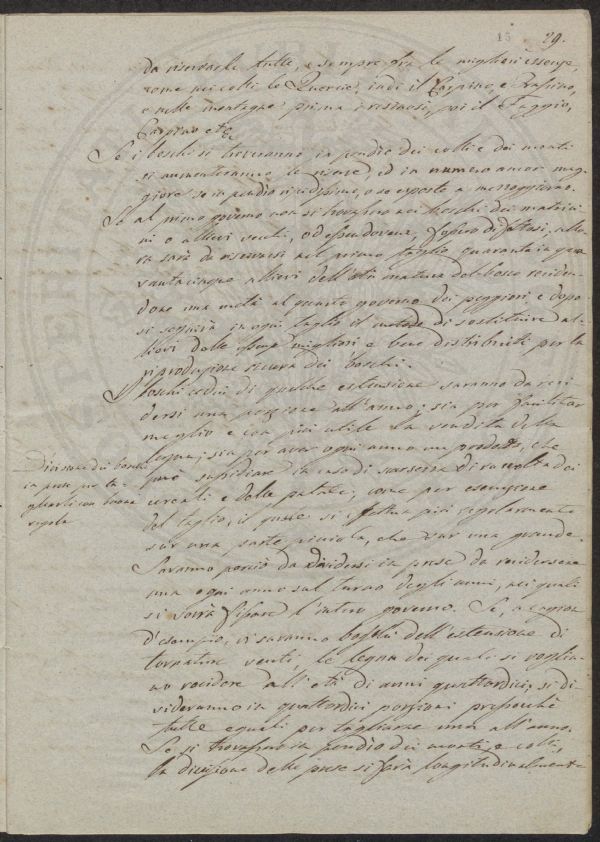 15 29.
da riservarle tutte, e sempre fra le migliori essenze,
come nei colli le Quercie, indi il Carpino, e Frassino,
e nelle montagne prima i resinosi, poi il Faggio,
Carpino etc
Se i boschi si troveranno in pendio dei colli e dei monti
si aumenteranno le riserve, ed in numero ancor mag
giore se in pendio ripidissimo, o se esposte a mezzogiorno.
Se al primo governo non si trovassero nei boschi dei matrici
ni o allievi vecchi, od essendovene, fossero difettosi, allo
ra sarà da riservarsi nel primo taglio quaranta in qua
rantacinque allievi dell'età matura del bosco reciden
done una metà al quarto governo dei peggiori, e dopo
si seguirà in ogni taglio il metodo di sostituire al
lievi delle essenze migliori e bene distribuiti per la
riproduzione sicura dei boschi.
I boschi cedui di qualche estensione saranno da reci
dersi una porzione all'anno; sia per facilitar
meglio e con più utile la vendita della
legna; sia per aver ogni anno un prodotto, che
può supplire in caso di scarsezza di raccolta dei
cereali e delle patate, come per esecuzione
del taglio, il quale si effettua più regolarmente
sur una parte piccola, che sur una grande.
Divisione dei boschi
in prese per ta
gliarli con buona
regola
Saranno perciò da dividersi in prese da recidersene
una ogni anno sul turno degli anni, nei quali
si vorrà fissare l'intero governo. Se, a cagion
d'esempio, vi saranno boschi dell'estensione di
tornature venti, le legna dei quali si voglia
no recidere all'età di anni quattordici, si di
videranno in quattordici porzioni pressochè
tutte eguali per tagliarne una all'anno.
Se si trovassero in pendio dei monti, e colli,
la divisione delle prese si farà longitudinalmente